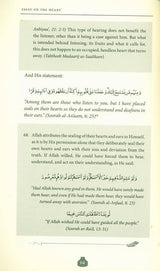 ESSAY ON THE HEART
Anbiyaa', 21: 2-3) This type of hearing does not benefit the
listener, other than it being a case against him. But what
is intended behind listening, its fruits and what it calls for,
this does not happen to an occupied, heedless heart that turns
away. (Tabbaah Madaarij as-Saalikeen)
And His statement:
"Among them are those who listen to you, but I have placed
seals on their hearts so they do not understand and deafness in
their ears." (Soorah al-An'aam, 6: 25)"
Allah attributes the sealing of their hearts and ears to Himself,
as it is by His permission alone that they deliberately seal their
own hearts and ears with their sin and deviation from the
truth. If Allah willed, He could have forced them to hear,
understand, and act on their understanding, as He said:
وَلَوْ عَلِمَ اللَّهُ فِيهِمْ خَيْرًا لَأَسْمَعَهُمْ وَلَوْ أَسْمَعَهُمْ لَتَوَلَّوْا وَهُمْ مُعْرِضُونَ
"Had Allah known any good in them, He would have surely made
them hear, and even if He had made them hear, they would have
turned away with aversion." (Soorah al-Anfaal, 8: 23)
"If Allah wished He could have guided all the people."
(Soorah ar-Ra'd, 13: 31)